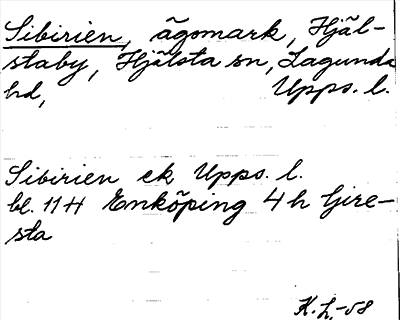 Sibirien, ägomark, Hjäl-
staby, Hjälsta sn, Lagunda
hd, Upps. l.
Sibirien ek Upps. l.
bl. 11 H Enköping 4 h Gire-
sta
K. L. -58